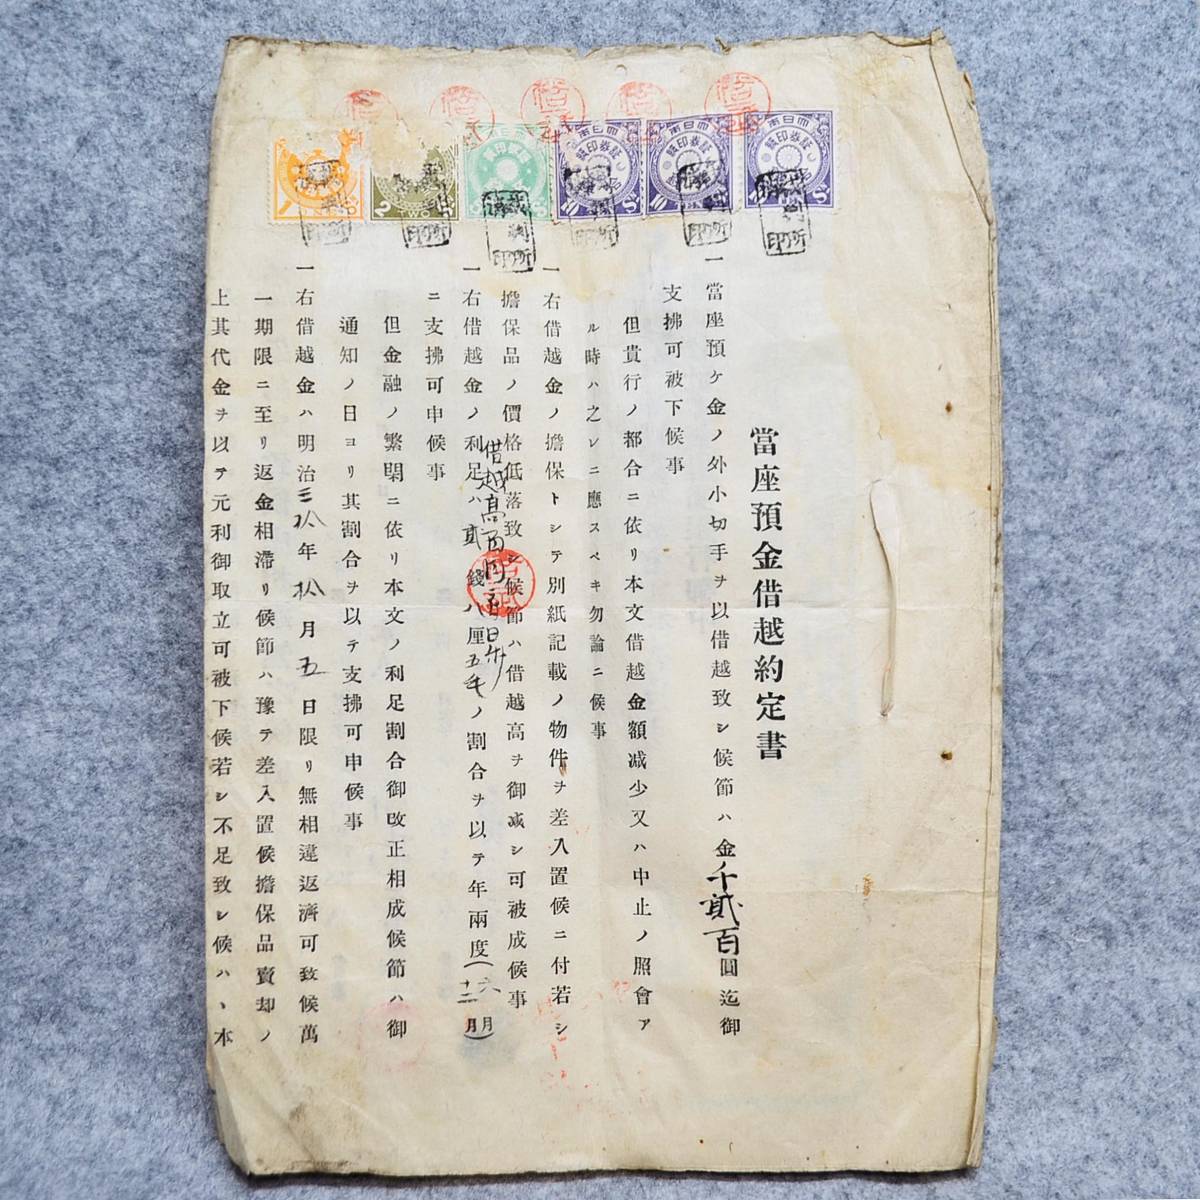 當座預金借越約定書
一當座預ケ金ノ外小切手ヲ以借越致シ候節ハ金千貳百圓迄御
支拂可被下候事
但貴行ノ都合ニ依リ本文借越金額减少又ハ中止ノ照會ア
ル時ハ之レニ應スベキ勿論ニ候事
一右借越金ノ擔保トシテ別紙記載ノ物件ヲ差入置候ニ付若シ
擔保品ノ價格低落致シ候節ハ借越高ヲ御减シ可被成候事
借越高百円ニ付日歩
一右借越金ノ利足ハ貳錢八厘五毛ノ割合ヲ以テ年兩度(六月十二月)
ニ支拂可申候事
但金融ノ繁閑ニ依リ本文ノ利足割合御改正相成候節ハ御
通知ノ日ヨリ其割合ヲ以テ支拂可申候事
一右借越金ハ明治三拾年拾月五日限リ無相違返濟可致候萬
一期限ニ至リ返金相滯リ候節ハ豫テ差入置候擔保品賣却ノ
上其代金ヲ以テ元利御取立可被下候若シ不足致シ候ハヽ本